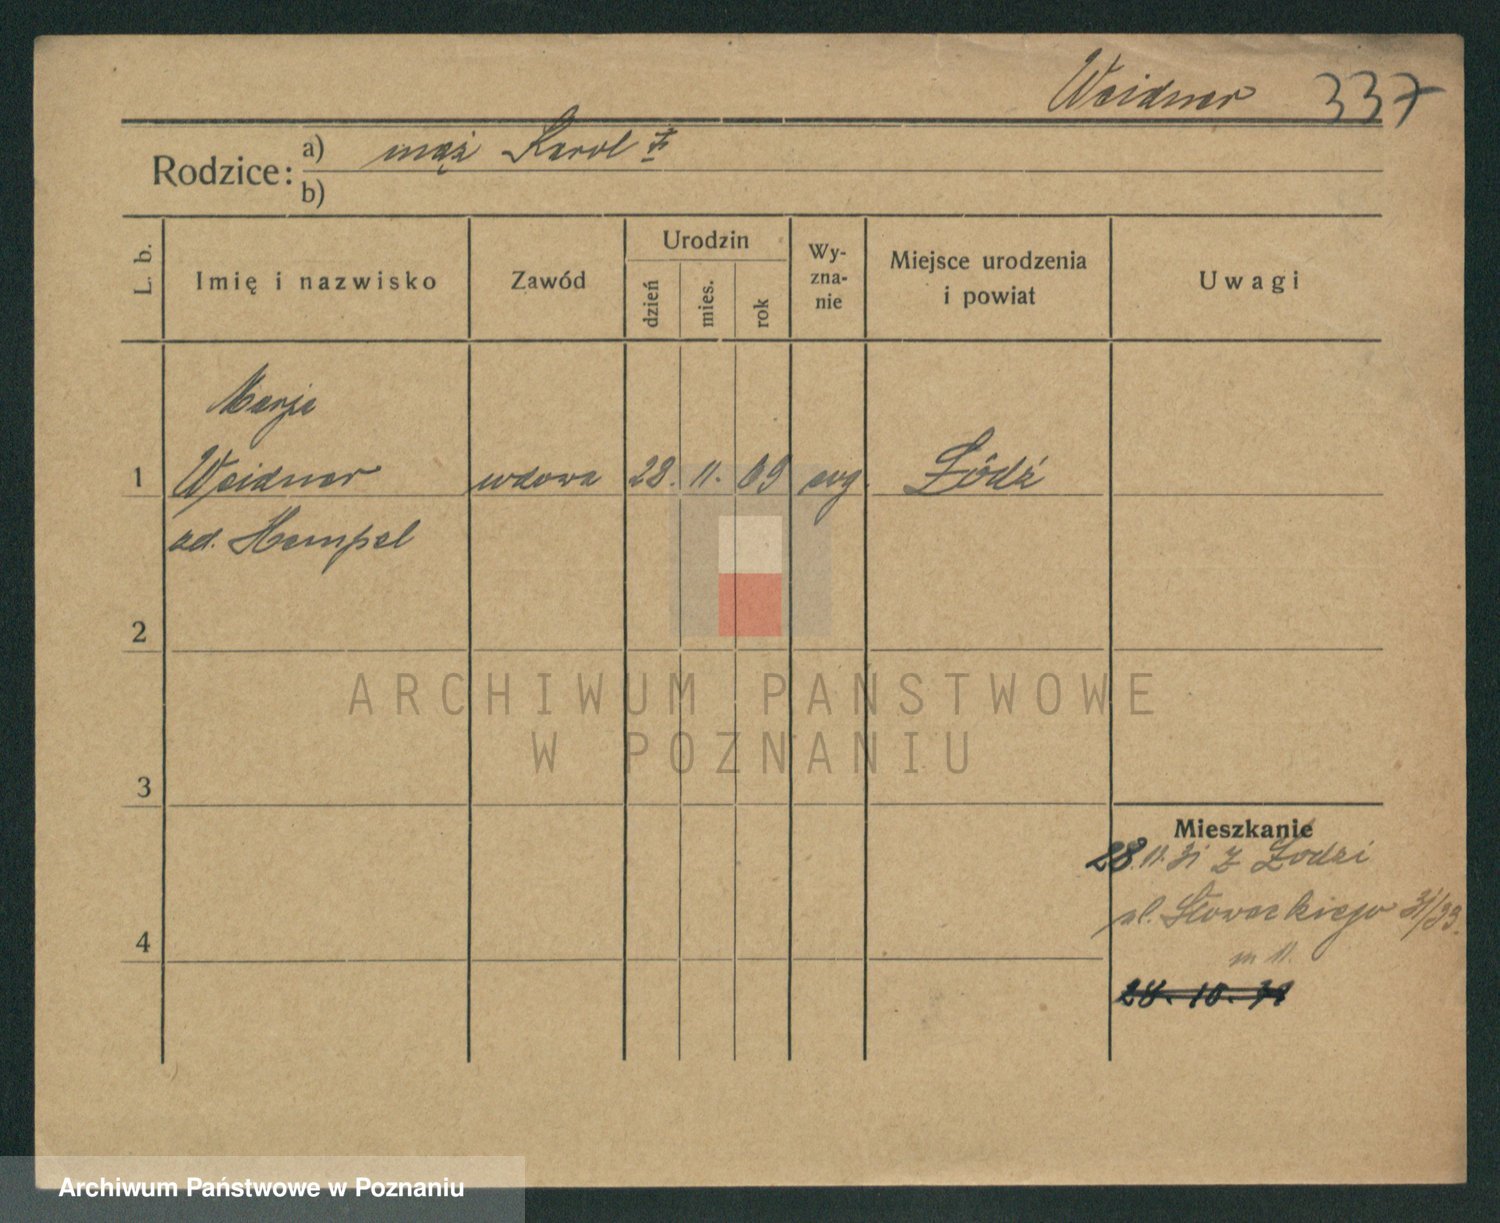 Weidner 337
Rodzice: a) mąż Karol
b)
L. b.
Imię i nazwisko
Zawód
Urodzin
dzień
mies.
rok
Wy-
zna-
nie
Miejsce urodzenia
i powiat
Uwagi
Marja
1 Weidner wdowa 28. 11. 09 ewg. Łódź
zd. Hempel
2
3
4
Mieszkanie
28. 11. 31 z Łodzi
ul. Słowackiego 31/33.
m 11.
28. 10.
ARCHIWUM PAŃSTWOWE
W POZNANIU
Archiwum Państwowe w Poznaniu